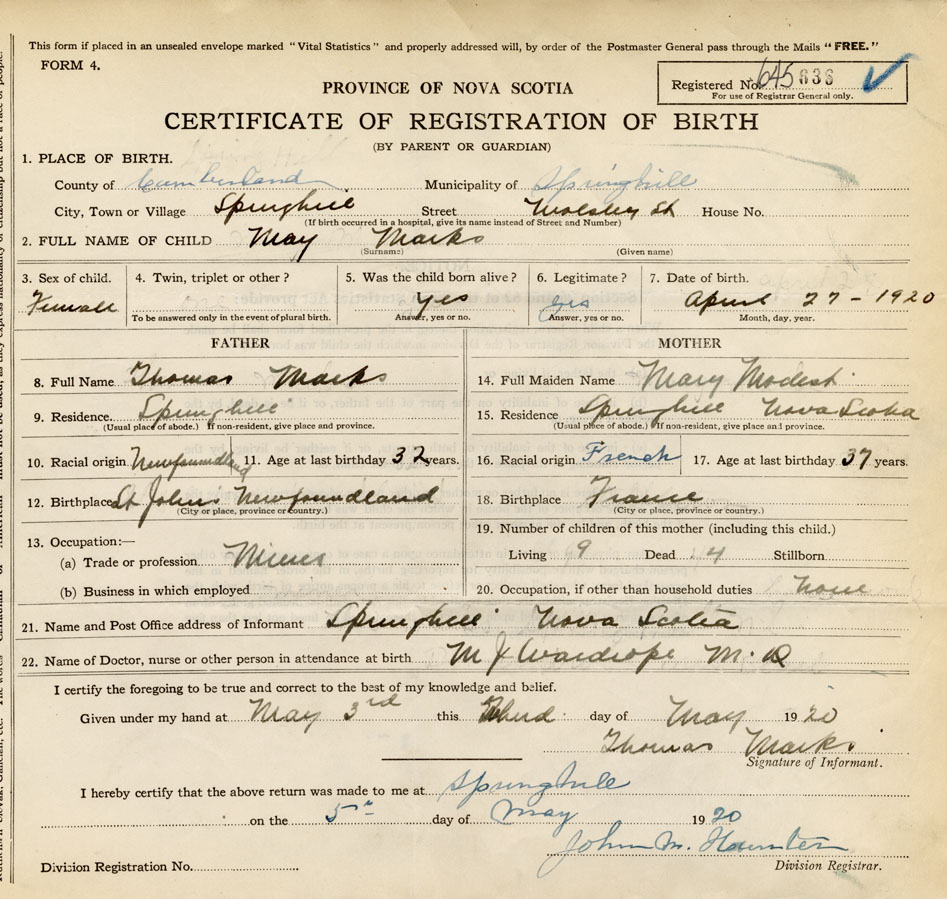 This form if placed in an unsealed envelope marked "Vital Statistics" and properly addressed will, by order of the Postmaster General pass through the Mails "FREE."
FORM 4.
Registered No. 645 636
For use of Registrar General only.
PROVINCE OF NOVA SCOTIA
CERTIFICATE OF REGISTRATION OF BIRTH
(BY PARENT OR GUARDIAN)
1. PLACE OF BIRTH.
County of Cumberland Municipality of Springhill
City, Town or Village Springhill Street Wolsley St House No.
(If birth occurred in a hospital, give its name instead of Street and Number)
2. FULL NAME OF CHILD May Marks
(Surname) (Given name)
3. Sex of child. 4. Twin, triplet or other? 5. Was the child born alive? 6. Legitimate? 7. Date of birth.
Female yes yes April 27 - 1920
To be answered only in the event of plural birth. Answer, yes or no. Answer, yes or no. Month, day, year.
FATHER MOTHER
8. Full Name Thomas Marks
14. Full Maiden Name Mary Modest
9. Residence. Springhill
15. Residence Springhill Nova Scotia
(Usual place of abode.) If non-resident, give place and province.
(Usual place of abode.) If non-resident, give place and province.
10. Racial origin Newfoundland 11. Age at last birthday 32 years.
16. Racial origin French 17. Age at last birthday 37 years.
12. Birthplace St John's Newfoundland
(City or place, province or country.)
18. Birthplace France
(City or place, province or country.)
13. Occupation:—
19. Number of children of this mother (including this child.)
(a) Trade or profession Miner
Living 9 Dead 4 Stillborn
(b) Business in which employed
20. Occupation, if other than household duties none
21. Name and Post Office address of Informant Springhill Nova Scotia
22. Name of Doctor, nurse or other person in attendance at birth M J Wardrope M.D
I certify the foregoing to be true and correct to the best of my knowledge and belief.
Given under my hand at May 3rd this Third day of May 1920
Thomas Marks
Signature of Informant.
I hereby certify that the above return was made to me at Springhill
on the 5th day of May 1920
John M. Hunter
Division Registration No. Division Registrar.